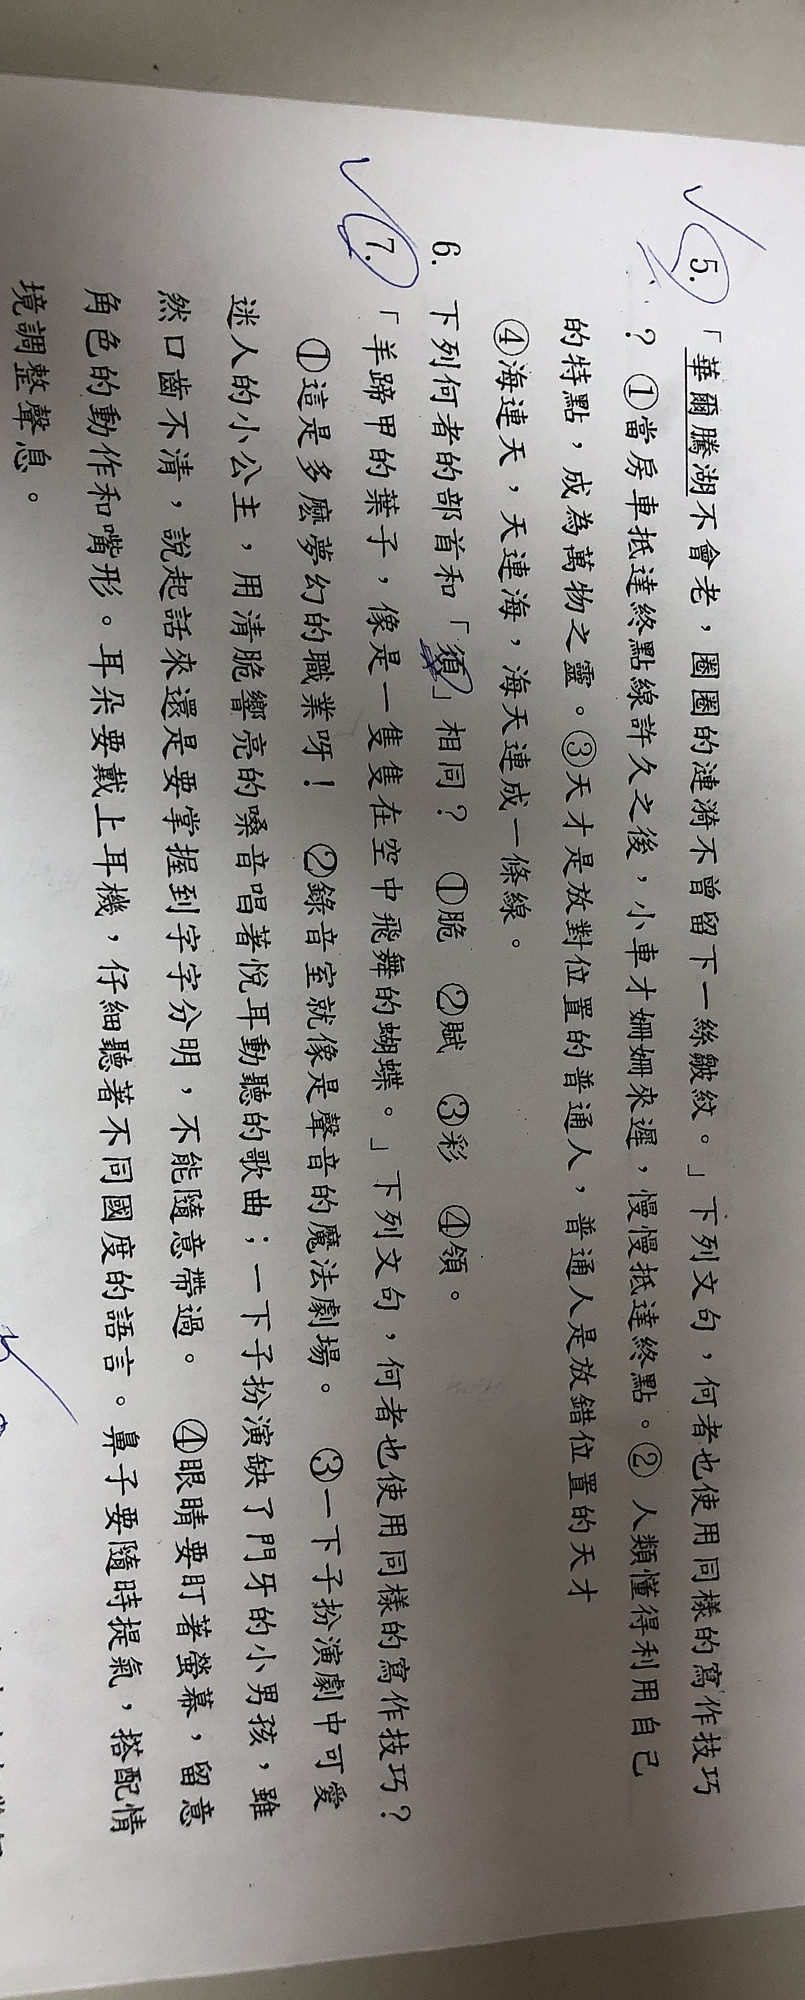 5. 「華爾騰湖不會老，圈圈的漣漪不曾留下一絲皺紋。」下列文句，何者也使用同樣的寫作技巧
？ ①當房車抵達終點線許久之後，小車才姍姍來遲，慢慢抵達終點。② 人類懂得利用自己
的特點，成為萬物之靈。③天才是放對位置的普通人，普通人是放錯位置的天才
④海連天，天連海，海天連成一條線。
6. 下列何者的部首和「須」相同？ ①脆 ②賦 ③彩 ④領。
7. 「羊蹄甲的葉子，像是一隻隻在空中飛舞的蝴蝶。」下列文句，何者也使用同樣的寫作技巧？
①這是多麼夢幻的職業呀！ ②錄音室就像是聲音的魔法劇場。 ③一下子扮演劇中可愛
迷人的小公主，用清脆響亮的嗓音唱著悅耳動聽的歌曲；一下子扮演缺了門牙的小男孩，雖
然口齒不清，說起話來還是要掌握到字字分明，不能隨意帶過。 ④眼睛要盯著螢幕，留意
角色的動作和嘴形。耳朵要戴上耳機，仔細聽著不同國度的語言。鼻子要隨時提氣，搭配情
境調整聲息。